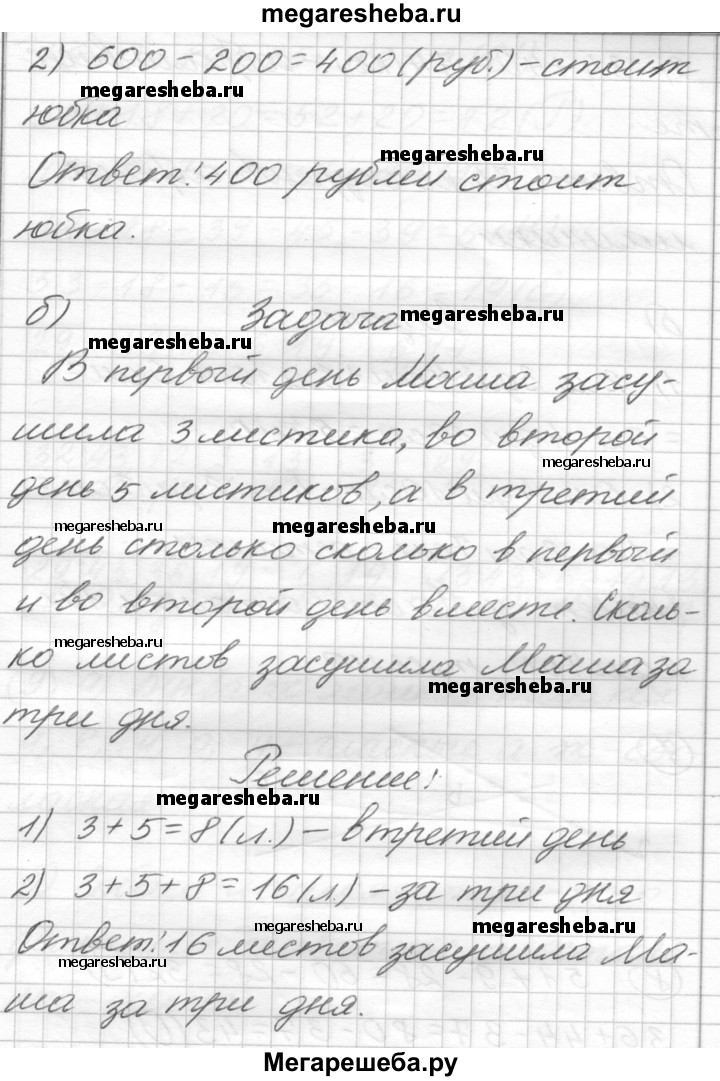 megaresheba.ru
2) 600 - 200 = 400 (руб.) - стоит
megaresheba.ru
юбка
megaresheba.ru
Ответ: 400 рублей стоит
юбка.
б) Задача
megaresheba.ru
megaresheba.ru
В первый день Маша засу-
шила 3 листика, во второй
megaresheba.ru
день 5 листиков, а в третий
megaresheba.ru megaresheba.ru
день столько сколько в первый
и во второй день вместе. Сколь-
megaresheba.ru
ко листов засушила Маша за
megaresheba.ru
три дня.
Решение:
megaresheba.ru
1) 3 + 5 = 8 (л.) - в третий день
2) 3 + 5 + 8 = 16 (л.) - за три дня
megaresheba.ru megaresheba.ru
Ответ: 16 листов засушила Ма-
megaresheba.ru
ша за три дня.
Мегарешеба.ру